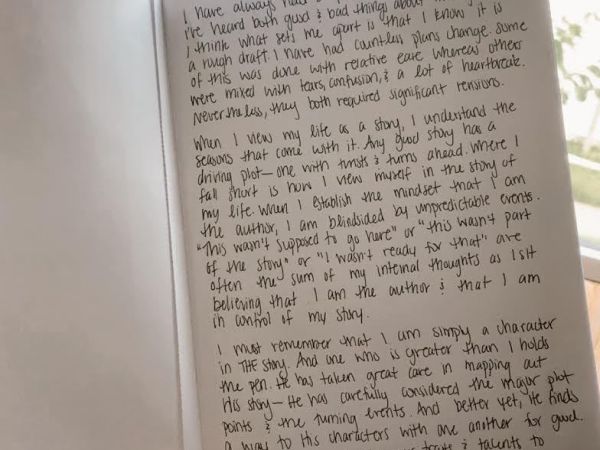 I have always had
I've heard both good & bad things about
I think what sets me apart is that I know it is
a rough draft. I have had countless plans change. Some
of this was done with relative ease whereas others
were mixed with tears, confusion, & a lot of heartbreak.
Nevertheless, they both required significant revisions.
When I view my life as a story, I understand the
seasons that come with it. Any good story has a
driving plot— one with twists & turns ahead. Where I
fall short is how I view myself in the story of
my life. When I establish the mindset that I am
the author, I am blindsided by unpredictable events.
"This wasn't supposed to go here" or "this wasn't part
of the story" or "I wasn't ready for that" are
often the sum of my internal thoughts as I sit
believing that I am the author & that I am
in control of my story.
I must remember that I am simply a character
in THE story. And one who is greater than I holds
the pen. He has taken great care in mapping out
His story— He has carefully considered the major plot
points & the turning events. And better yet, He finds
a way to His characters with one another for good.
traits & talents to